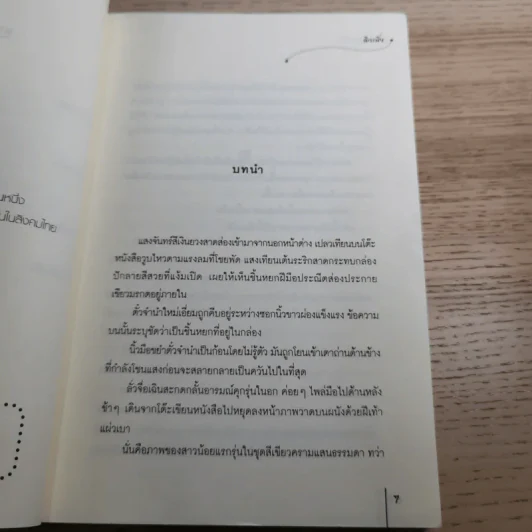 นหนึ่ง
นในสังคมไทย
บทนำ
แสงจันทร์สีเงินยวงสาดส่องเข้ามาจากนอกหน้าต่าง เปลวเทียนบนโต๊ะ
หนังสือวูบไหวตามแรงลมที่โชยพัด แสงเทียนเต้นระริกสาดกระทบกล่อง
ปักลายสีสวยที่แง้มเปิด เผยให้เห็นชิ้นหยกฝีมือประณีตส่องประกาย
เขียวมรกตอยู่ภายใน
ตั๋วจำนำใหม่เอี่ยมถูกคีบอยู่ระหว่างซอกนิ้วขาวผ่องแข็งแรง ข้อความ
บนนั้นระบุชัดว่าเป็นชิ้นหยกที่อยู่ในกล่อง
นิ้วมือขยำตั๋วจำนำเป็นก้อนโดยไม่รู้ตัว มันถูกโยนเข้าเตาถ่านด้านข้าง
ที่กำลังโชนแสงก่อนจะสลายกลายเป็นควันไปในที่สุด
ลั่วจื่อเฉินสะกดกลั้นอารมณ์คุกรุ่นในอก ค่อยๆ ไพล่มือไปด้านหลัง
ช้าๆ เดินจากโต๊ะเขียนหนังสือไปหยุดลงหน้าภาพวาดบนผนังด้วยฝีเท้า
แผ่วเบา
นั่นคือภาพของสาวน้อยแรกรุ่นในชุดสีเขียวครามแสนธรรมดา ทว่า
7